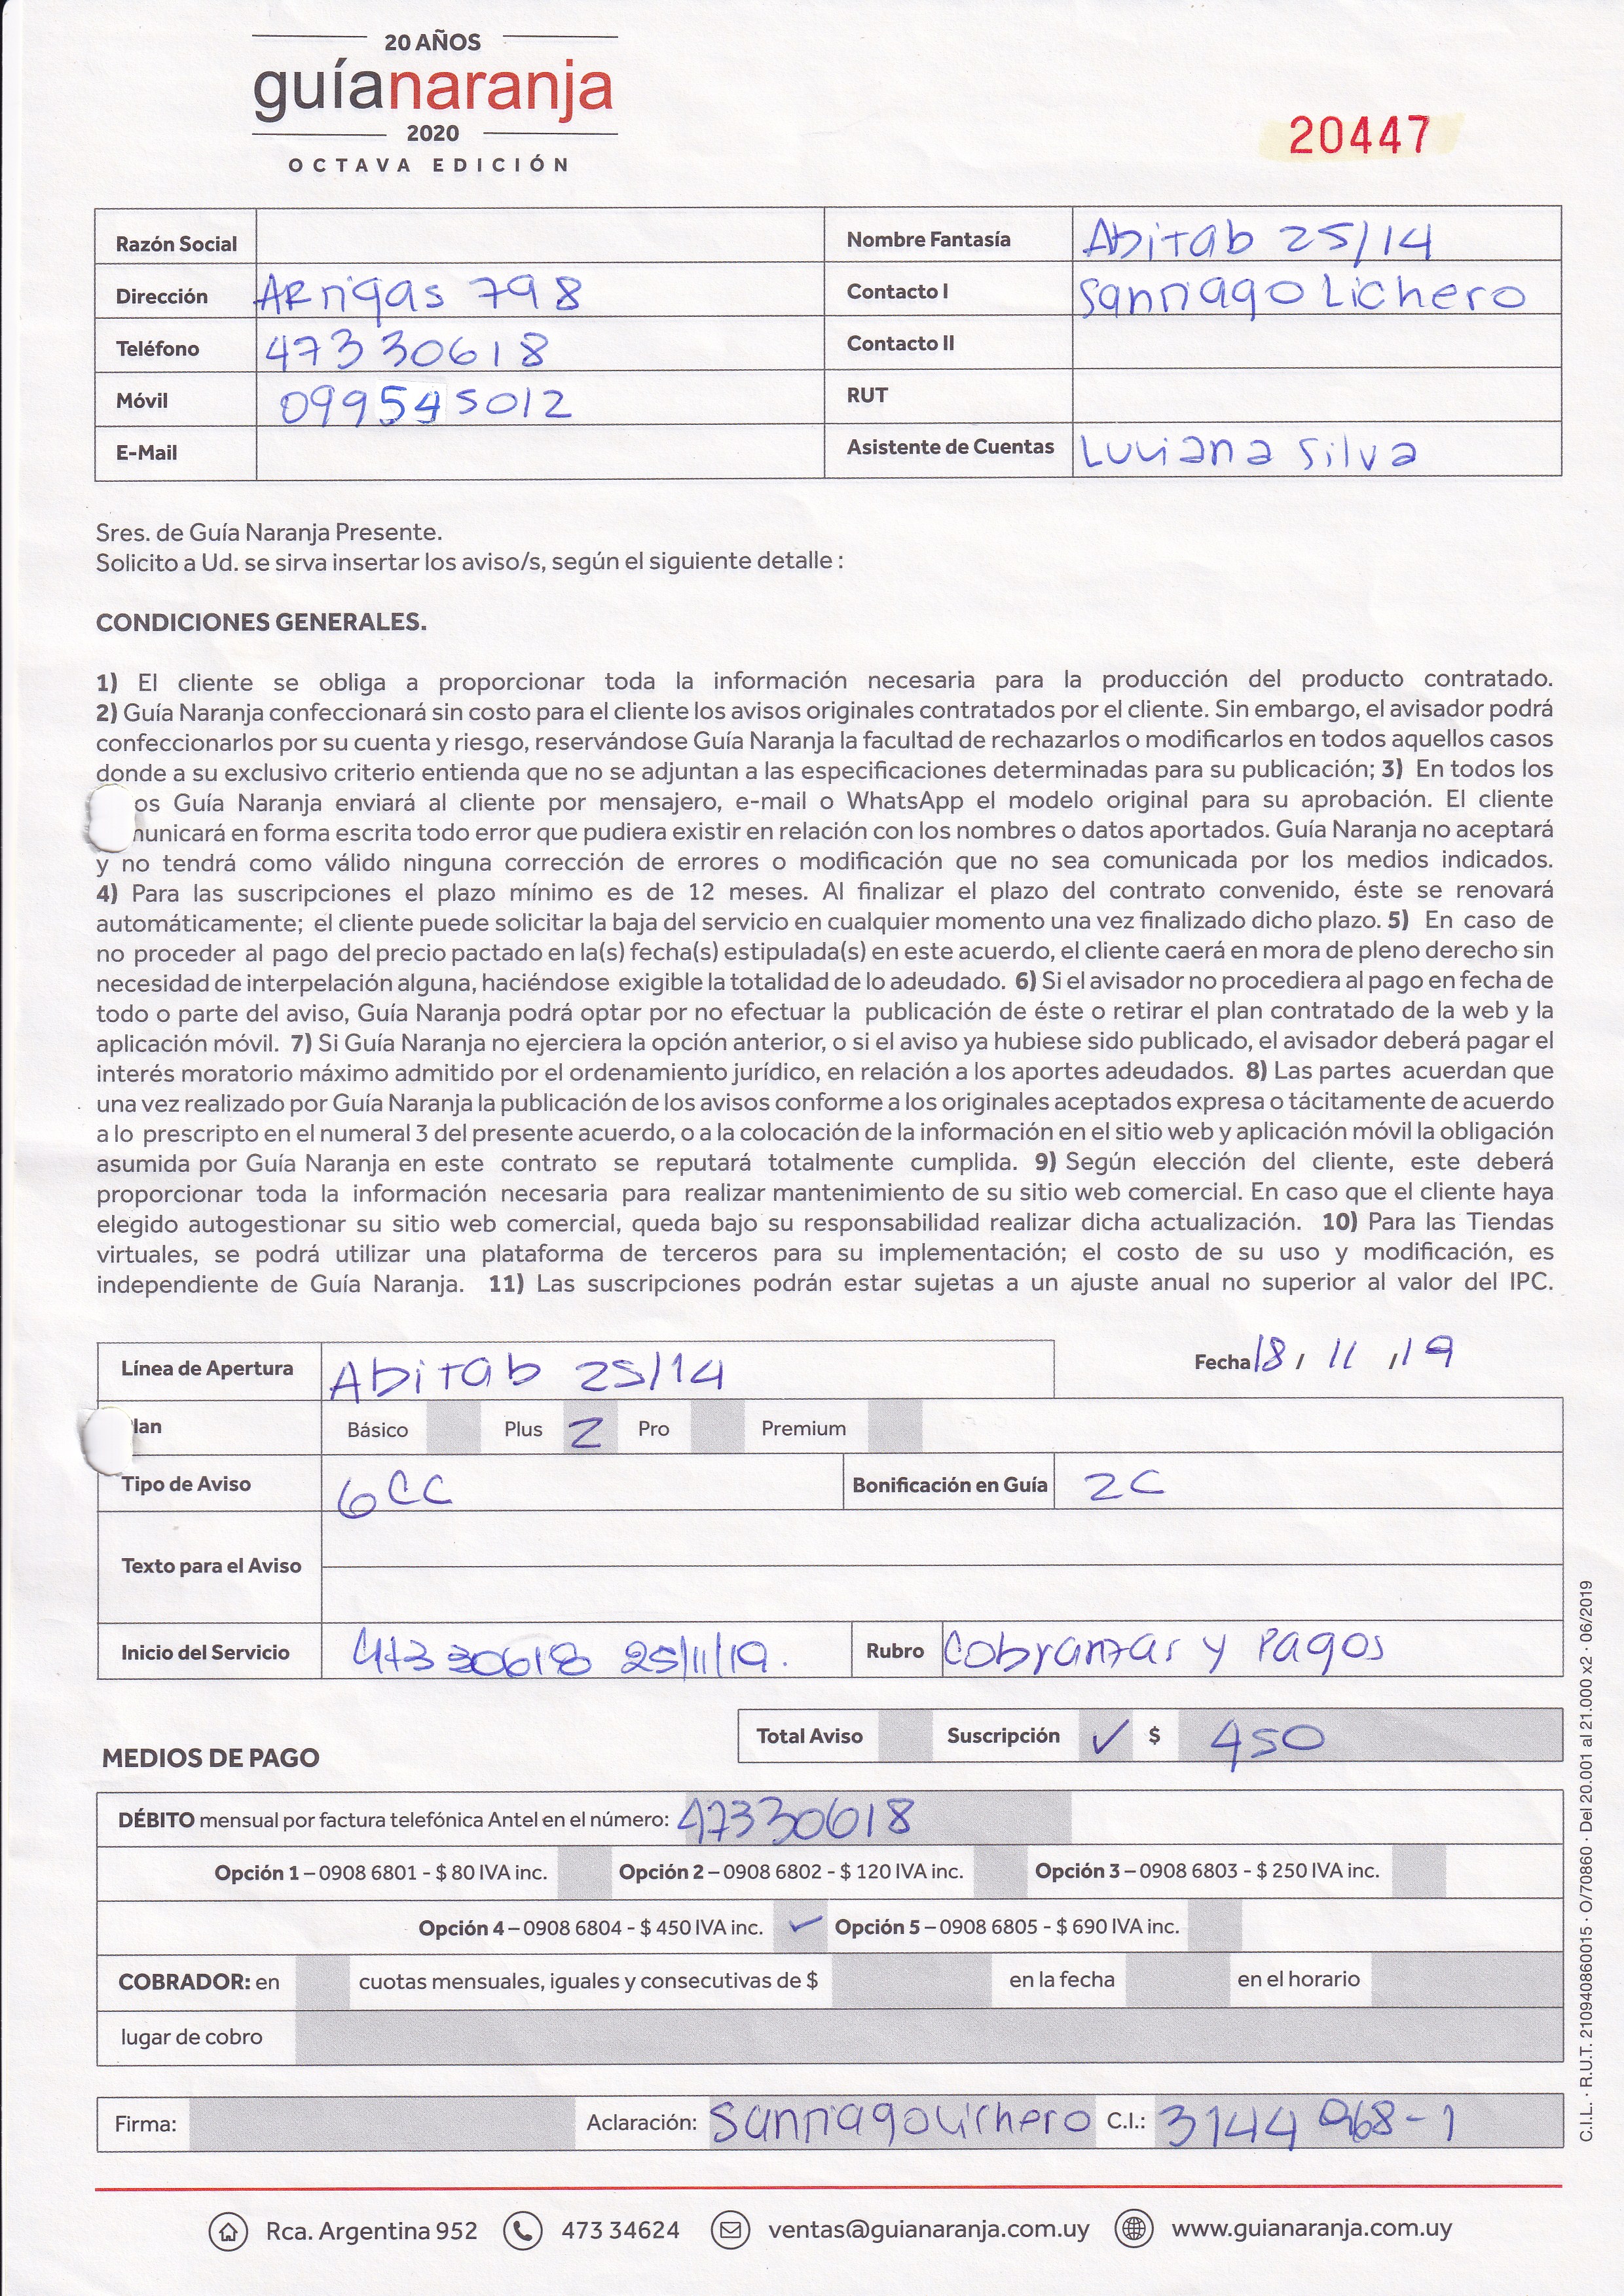 20 AÑOS
guíanaranja
2020
OCTAVA EDICIÓN
20447
Razón Social
Nombre Fantasía Abitab 25/14
Dirección Artigas 798
Contacto I Santiago Lichero
Teléfono 47330618
Contacto II
Móvil 099545012
RUT
E-Mail
Asistente de Cuentas Luciana Silva
Sres. de Guía Naranja Presente.
Solicito a Ud. se sirva insertar los aviso/s, según el siguiente detalle :
CONDICIONES GENERALES.
1) El cliente se obliga a proporcionar toda la información necesaria para la producción del producto contratado.
2) Guía Naranja confeccionará sin costo para el cliente los avisos originales contratados por el cliente. Sin embargo, el avisador podrá
confeccionarlos por su cuenta y riesgo, reservándose Guía Naranja la facultad de rechazarlos o modificarlos en todos aquellos casos
donde a su exclusivo criterio entienda que no se adjuntan a las especificaciones determinadas para su publicación; 3) En todos los
os Guía Naranja enviará al cliente por mensajero, e-mail o WhatsApp el modelo original para su aprobación. El cliente
municará en forma escrita todo error que pudiera existir en relación con los nombres o datos aportados. Guía Naranja no aceptará
y no tendrá como válido ninguna corrección de errores o modificación que no sea comunicada por los medios indicados.
4) Para las suscripciones el plazo mínimo es de 12 meses. Al finalizar el plazo del contrato convenido, éste se renovará
automáticamente; el cliente puede solicitar la baja del servicio en cualquier momento una vez finalizado dicho plazo. 5) En caso de
no proceder al pago del precio pactado en la(s) fecha(s) estipulada(s) en este acuerdo, el cliente caerá en mora de pleno derecho sin
necesidad de interpelación alguna, haciéndose exigible la totalidad de lo adeudado. 6) Si el avisador no procediera al pago en fecha de
todo o parte del aviso, Guía Naranja podrá optar por no efectuar la publicación de éste o retirar el plan contratado de la web y la
aplicación móvil. 7) Si Guía Naranja no ejerciera la opción anterior, o si el aviso ya hubiese sido publicado, el avisador deberá pagar el
interés moratorio máximo admitido por el ordenamiento jurídico, en relación a los aportes adeudados. 8) Las partes acuerdan que
una vez realizado por Guía Naranja la publicación de los avisos conforme a los originales aceptados expresa o tácitamente de acuerdo
a lo prescripto en el numeral 3 del presente acuerdo, o a la colocación de la información en el sitio web y aplicación móvil la obligación
asumida por Guía Naranja en este contrato se reputará totalmente cumplida. 9) Según elección del cliente, este deberá
proporcionar toda la información necesaria para realizar mantenimiento de su sitio web comercial. En caso que el cliente haya
elegido autogestionar su sitio web comercial, queda bajo su responsabilidad realizar dicha actualización. 10) Para las Tiendas
virtuales, se podrá utilizar una plataforma de terceros para su implementación; el costo de su uso y modificación, es
independiente de Guía Naranja. 11) Las suscripciones podrán estar sujetas a un ajuste anual no superior al valor del IPC.
Línea de Apertura Abitab 25/14
Fecha 18 / 11 / 19
lan Básico Plus 2 Pro Premium
Tipo de Aviso 6CC Bonificación en Guía 2C
Texto para el Aviso
Inicio del Servicio 47330618 25/11/19. Rubro Cobranzas y Pagos
Total Aviso Suscripción ✓ $ 450
MEDIOS DE PAGO
DÉBITO mensual por factura telefónica Antel en el número: 47330618
Opción 1 – 0908 6801 - $ 80 IVA inc. Opción 2 – 0908 6802 - $ 120 IVA inc. Opción 3 – 0908 6803 - $ 250 IVA inc.
Opción 4 – 0908 6804 - $ 450 IVA inc. ✓ Opción 5 – 0908 6805 - $ 690 IVA inc.
COBRADOR: en cuotas mensuales, iguales y consecutivas de $ en la fecha en el horario
lugar de cobro
Firma: Aclaración: Santiago Lichero C.I.: 3144 968-1
Rca. Argentina 952 473 34624 ventas@guianaranja.com.uy www.guianaranja.com.uy
C.I.L. · R.U.T. 210940860015 · O/70860 · Del 20.001 al 21.000 x2 · 06/2019